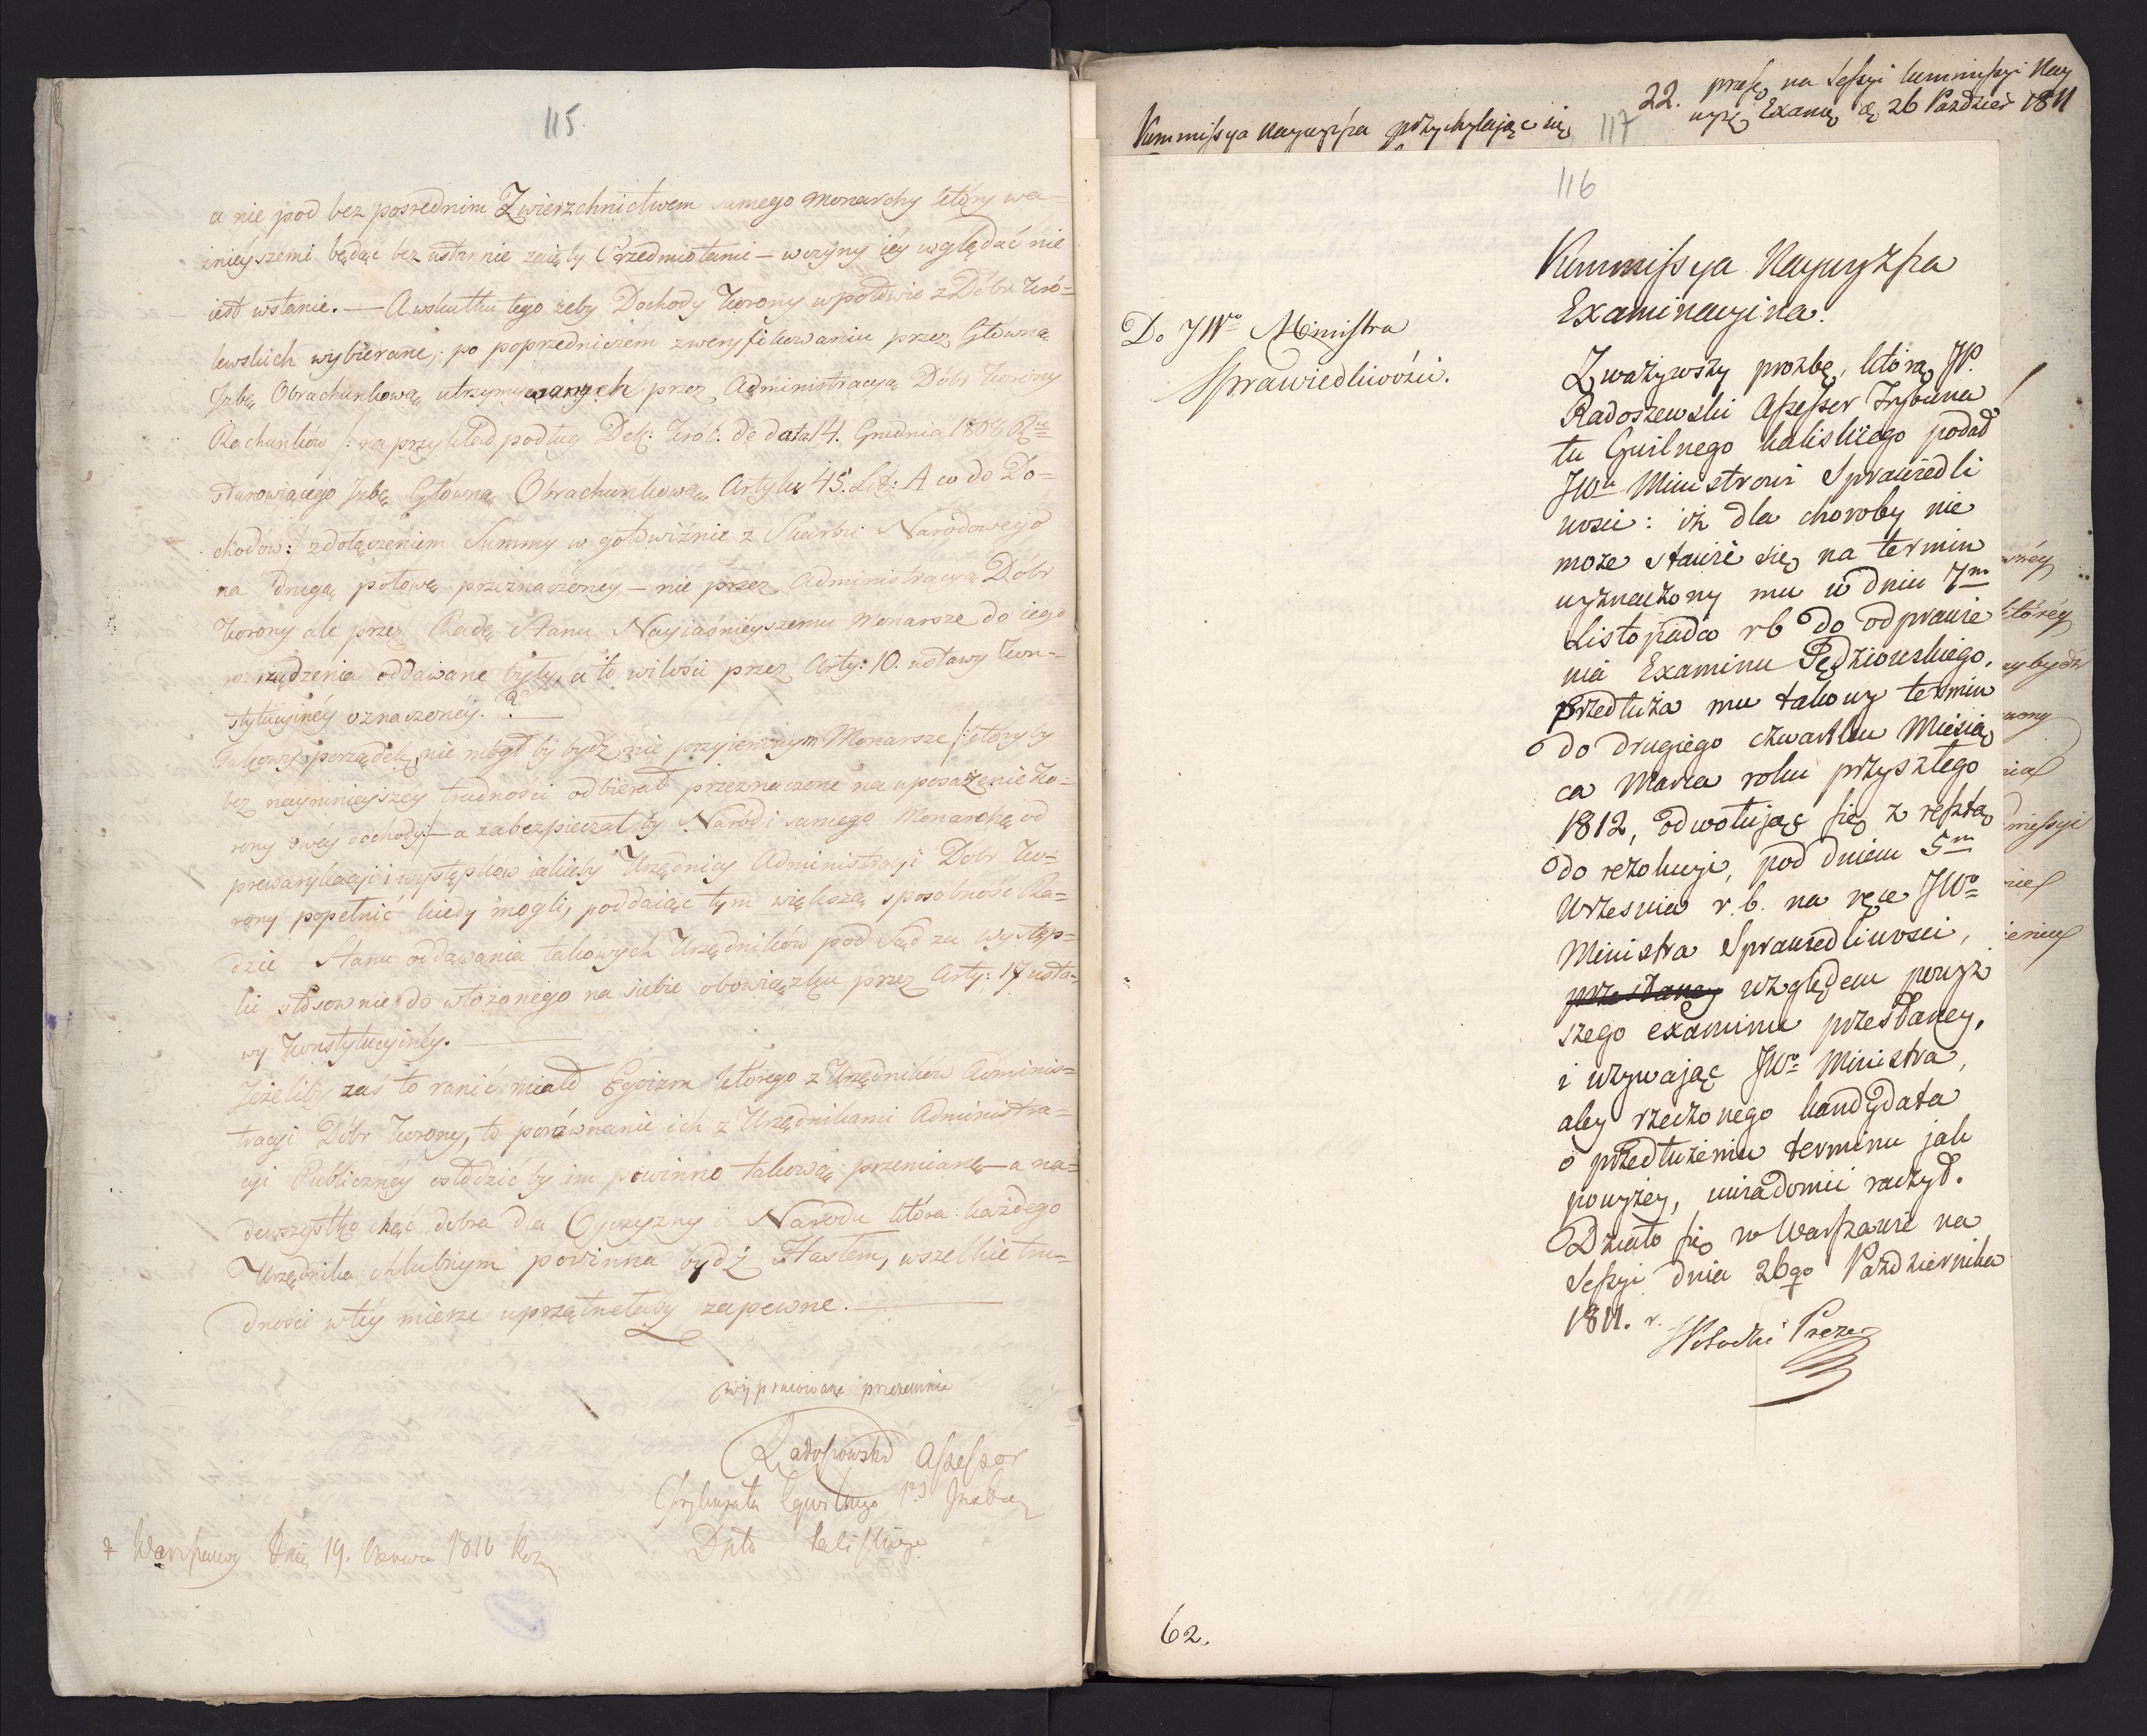 115.
a nie pod bez posrednim Zwierzchnictwem samego Monarchy który wa-
inieyszemi będąc bez ustannie zaięty Przedmiotami — wczyny iéy wglądać nie
iest wstanie. — A wskutku tego żeby Dochody Korony wpołowie z Dóbr Kró-
lewskich wybierane, po poprzedniczém zweryfikowaniu przez Główną
Izbę Obrachunkową utrzymywanych przez Administracyą Dóbr Korony
Rachunków /: na przykład podług Dek: Król: de dato 14. Grudnia 1808 R
stanowiącego Izbę Główną Obrachunkową Artykuł 45. Lit: A co do Do-
chodów :/ zdołączeniem Summy w gotowiźnie z Skarbu Narodowego
na drugą połowę przeznaczonéy — nie przez Administracyą Dóbr
Korony ale przez Radę Stanu Nayiaśnieyszemu Monarsze do iego
rozrządzenia oddawane były, a to wilości przez Arty: 10. ustawy Kon-
stytucyinéy oznaczonéy. —
Takowy porządek nie mógł by bydź nie przyiemnym Monarsze /: któryby
bez naymnieyszéy trudności odbierał przeznaczone na uposażenie Ko-
rony swéy dochody :/ — a zabezpieczał by Naród i samego Monarchę od
prewarykacyi i występków iakieby Urzędnicy Administracyi Dóbr Ko-
rony popełnić kiedy mogli, poddaiąc tym większą sposobność Ra-
dzie Stanu oddawania takowych Urzędników pod Sąd za występ-
ki stosownie do włożonego na siebie obowiązku przez Arty: 17 usta-
wy Konstytucyinéy. —
Jeżeliby zaś to ranić miało Egoizm którego z Urzędników Adminis-
tracyi Dóbr Korony, to porównanie ich z Urzędnikami Administra-
cyi Publicznéy osłodzić by im powinno takową przemianę — a na-
dewszystko chęć dobra dla Oyczyzny i Narodu która każdego
Urzędnika chlubnym powinna bydź Hasłem, wszelkie tru-
dności wtéy mierze uprzątnęłaby zapewne. —
wypracowane przezemnie
Radoszewski Assessor
Trybunału Cywilnego
Dpto Kaliskiego
z Warszawy Dnia 19. Czerwca 1810 Roku
22. praes. na Sessyi Kommissyi Nay
wyż. Exam. d. 26 Paździer 1811
Kommissya Naywyższa przychylając się
117
116
Kommissya Naywyższa
Examinacyina.
Do JWo Ministra
Sprawiedliwości.
Zważywszy prożbę, którą JP.
Radoszewski Assessor Trybuna
łu Cywilnego Kaliskiego podał
JWu Ministrowi Sprawiedli
wości: iż dla choroby nie
może stawić się na termin
wyznaczony mu w dniu 7m
Listopada rb do odprawie
nia Examinu Sędziowskiego,
przedłuża mu takowy termin
do drugiego czwartku Miesią
ca Marca roku przyszłego
1812, odwołując się z resztą
do rezolucyi, pod dniem 5m
Września r. b. na ręce JWo
Ministra Sprawiedliwości,
przesłaney względem powyż
szego examinu przesłaney,
i wzywając JWo Ministra,
aby rzeczonego kandydata
o przedłużeniu terminu jak
powyżey, uwiadomić raczył.
Działo się w Warszawie na
Sessyi dnia 26go Października
1811. r.
Wł­o­dki Prezes
62.